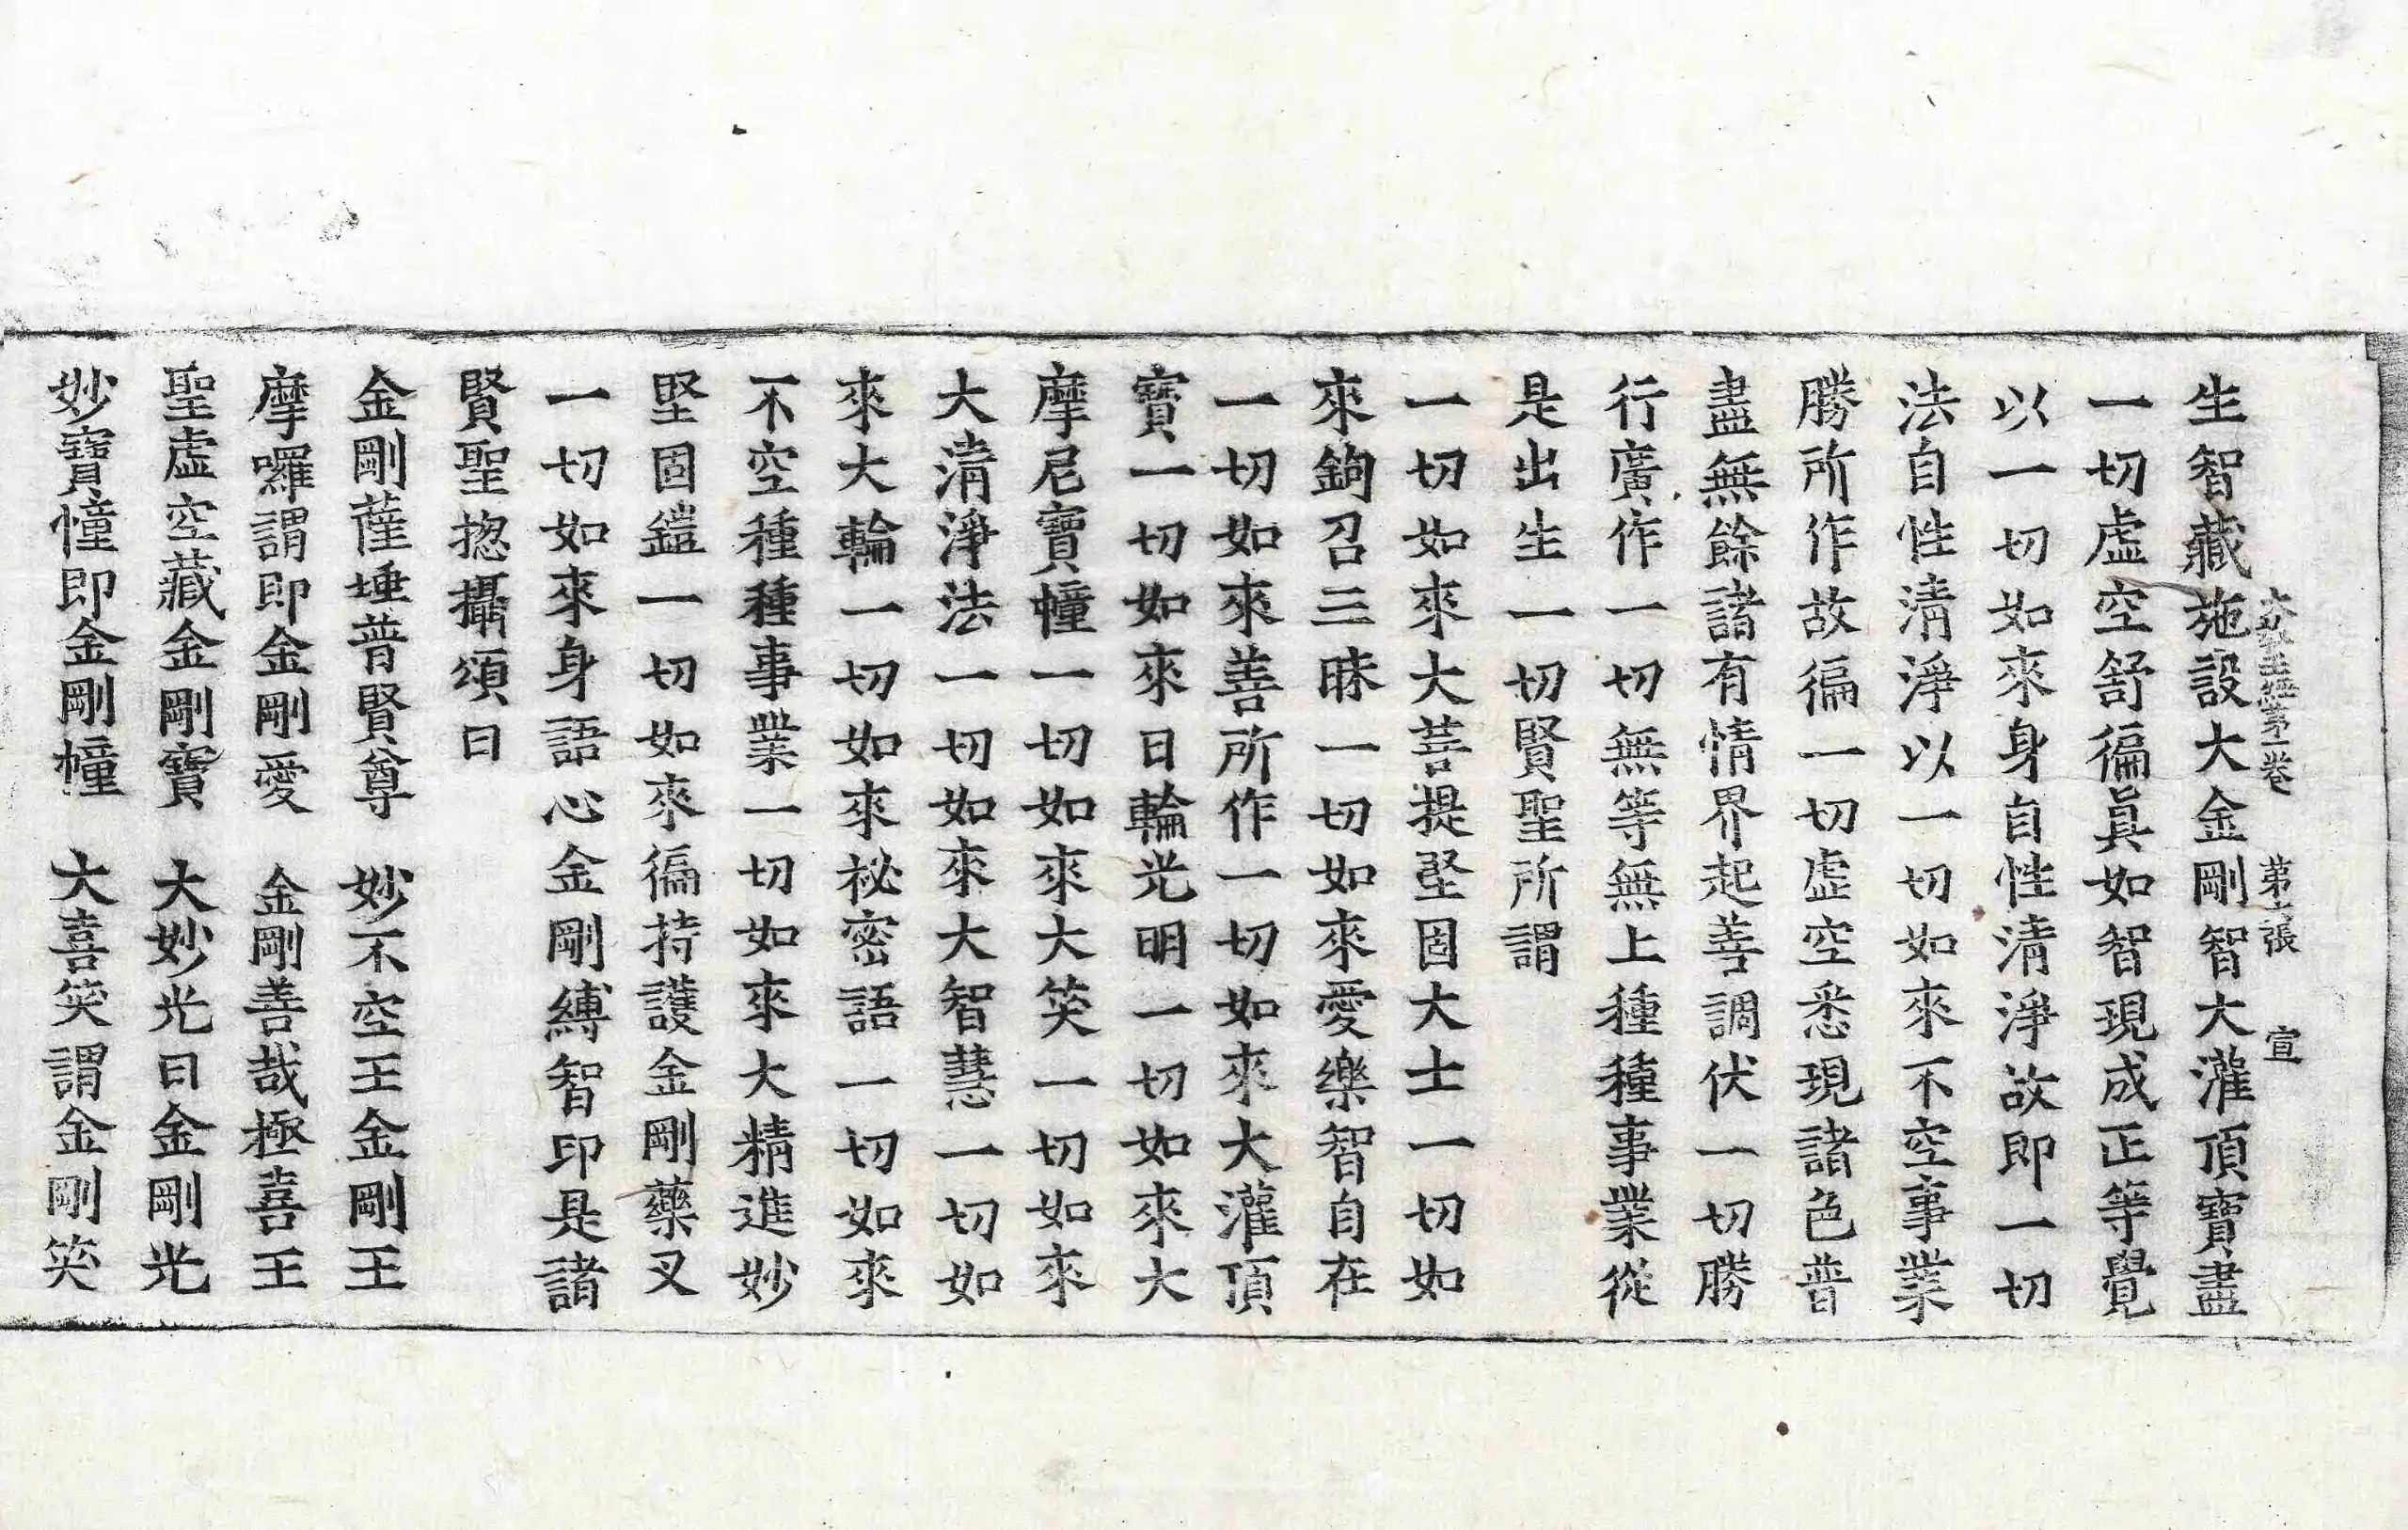 大教王經第一卷 第 張 宣
生智藏施設大金剛智大灌頂寶盡
一切虛空舒徧眞如智現成正等覺
以一切如來身自性清淨故即一切
法自性清淨以一切如來不空事業
勝所作故徧一切虛空悉現諸色普
盡無餘諸有情界起善調伏一切勝
行廣作一切無等無上種種事業從
是出生一切賢聖所謂
一切如來大菩提堅固大士一切如
來鉤召三昧一切如來愛樂智自在
一切如來善所作一切如來大灌頂
寶一切如來日輪光明一切如來大
摩尼寶幢一切如來大笑一切如來
大清淨法一切如來大智慧一切如
來大輪一切如來祕密語一切如來
不空種種事業一切如來大精進妙
堅固鎧一切如來徧持護金剛藥叉
一切如來身語心金剛縛智印是諸
賢聖揔攝頌曰
金剛薩埵普賢尊 妙不空王金剛王
摩囉謂即金剛愛 金剛善哉極喜王
聖虛空藏金剛寶 大妙光曰金剛光
妙寶幢即金剛幢 大喜笑謂金剛笑